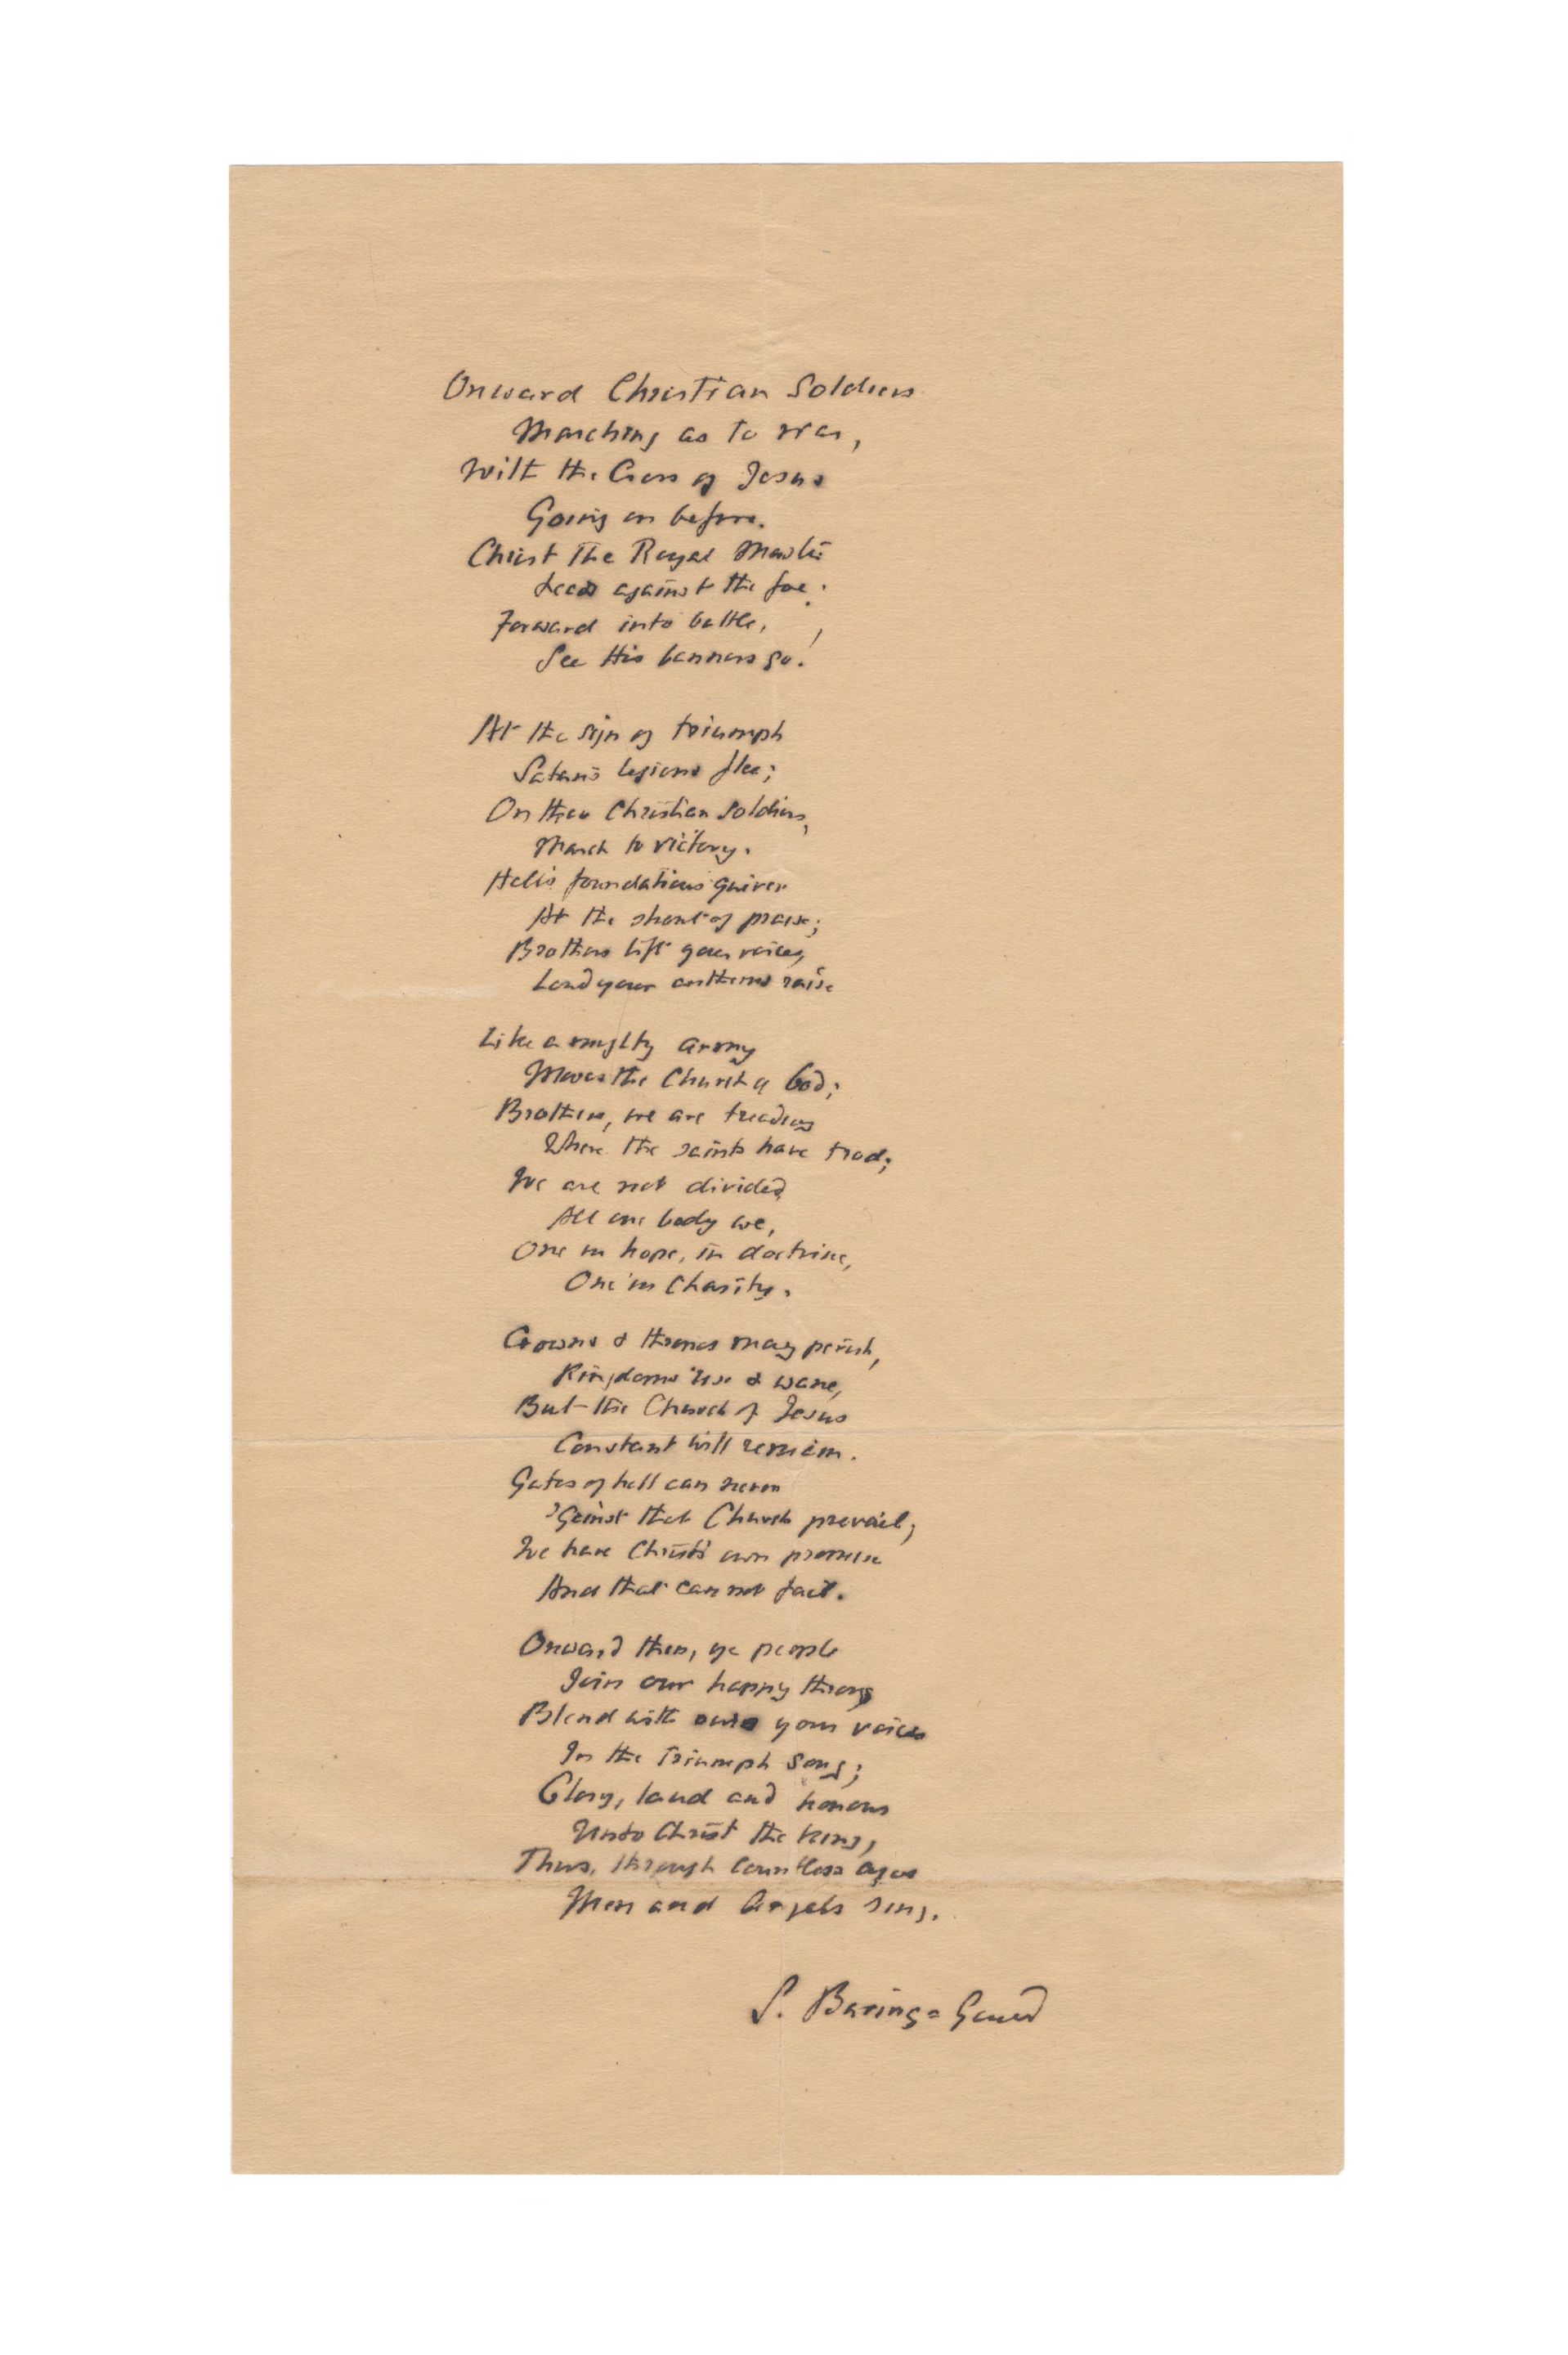 Onward Christian Soldiers
Marching as to War,
With the Cross of Jesus
Going on before.
Christ the Royal Master
Leads against the foe:
Forward into battle,
See His banners go!
At the sign of triumph
Satan's legions flee;
On then Christian Soldiers,
March to victory.
Hell's foundations quiver
At the shout of praise;
Brothers lift your voices,
Loud your anthems raise
Like a mighty army
Moves the Church of God;
Brothers, we are treading
Where the saints have trod;
We are not divided
All one body we,
One in hope, in doctrine,
One in Charity.
Crowns & thrones may perish,
Kingdoms rise & wane,
But the Church of Jesus
Constant will remain.
Gates of hell can never
'Gainst that Church prevail;
We have Christ's own promise
And that cannot fail.
Onward then, ye people
Join our happy throng
Blend with ours your voices
In the Triumph Song;
Glory, laud and honour
Unto Christ the King,
Thus, through countless ages
Men and Angels sing.
S. Baring=Gould